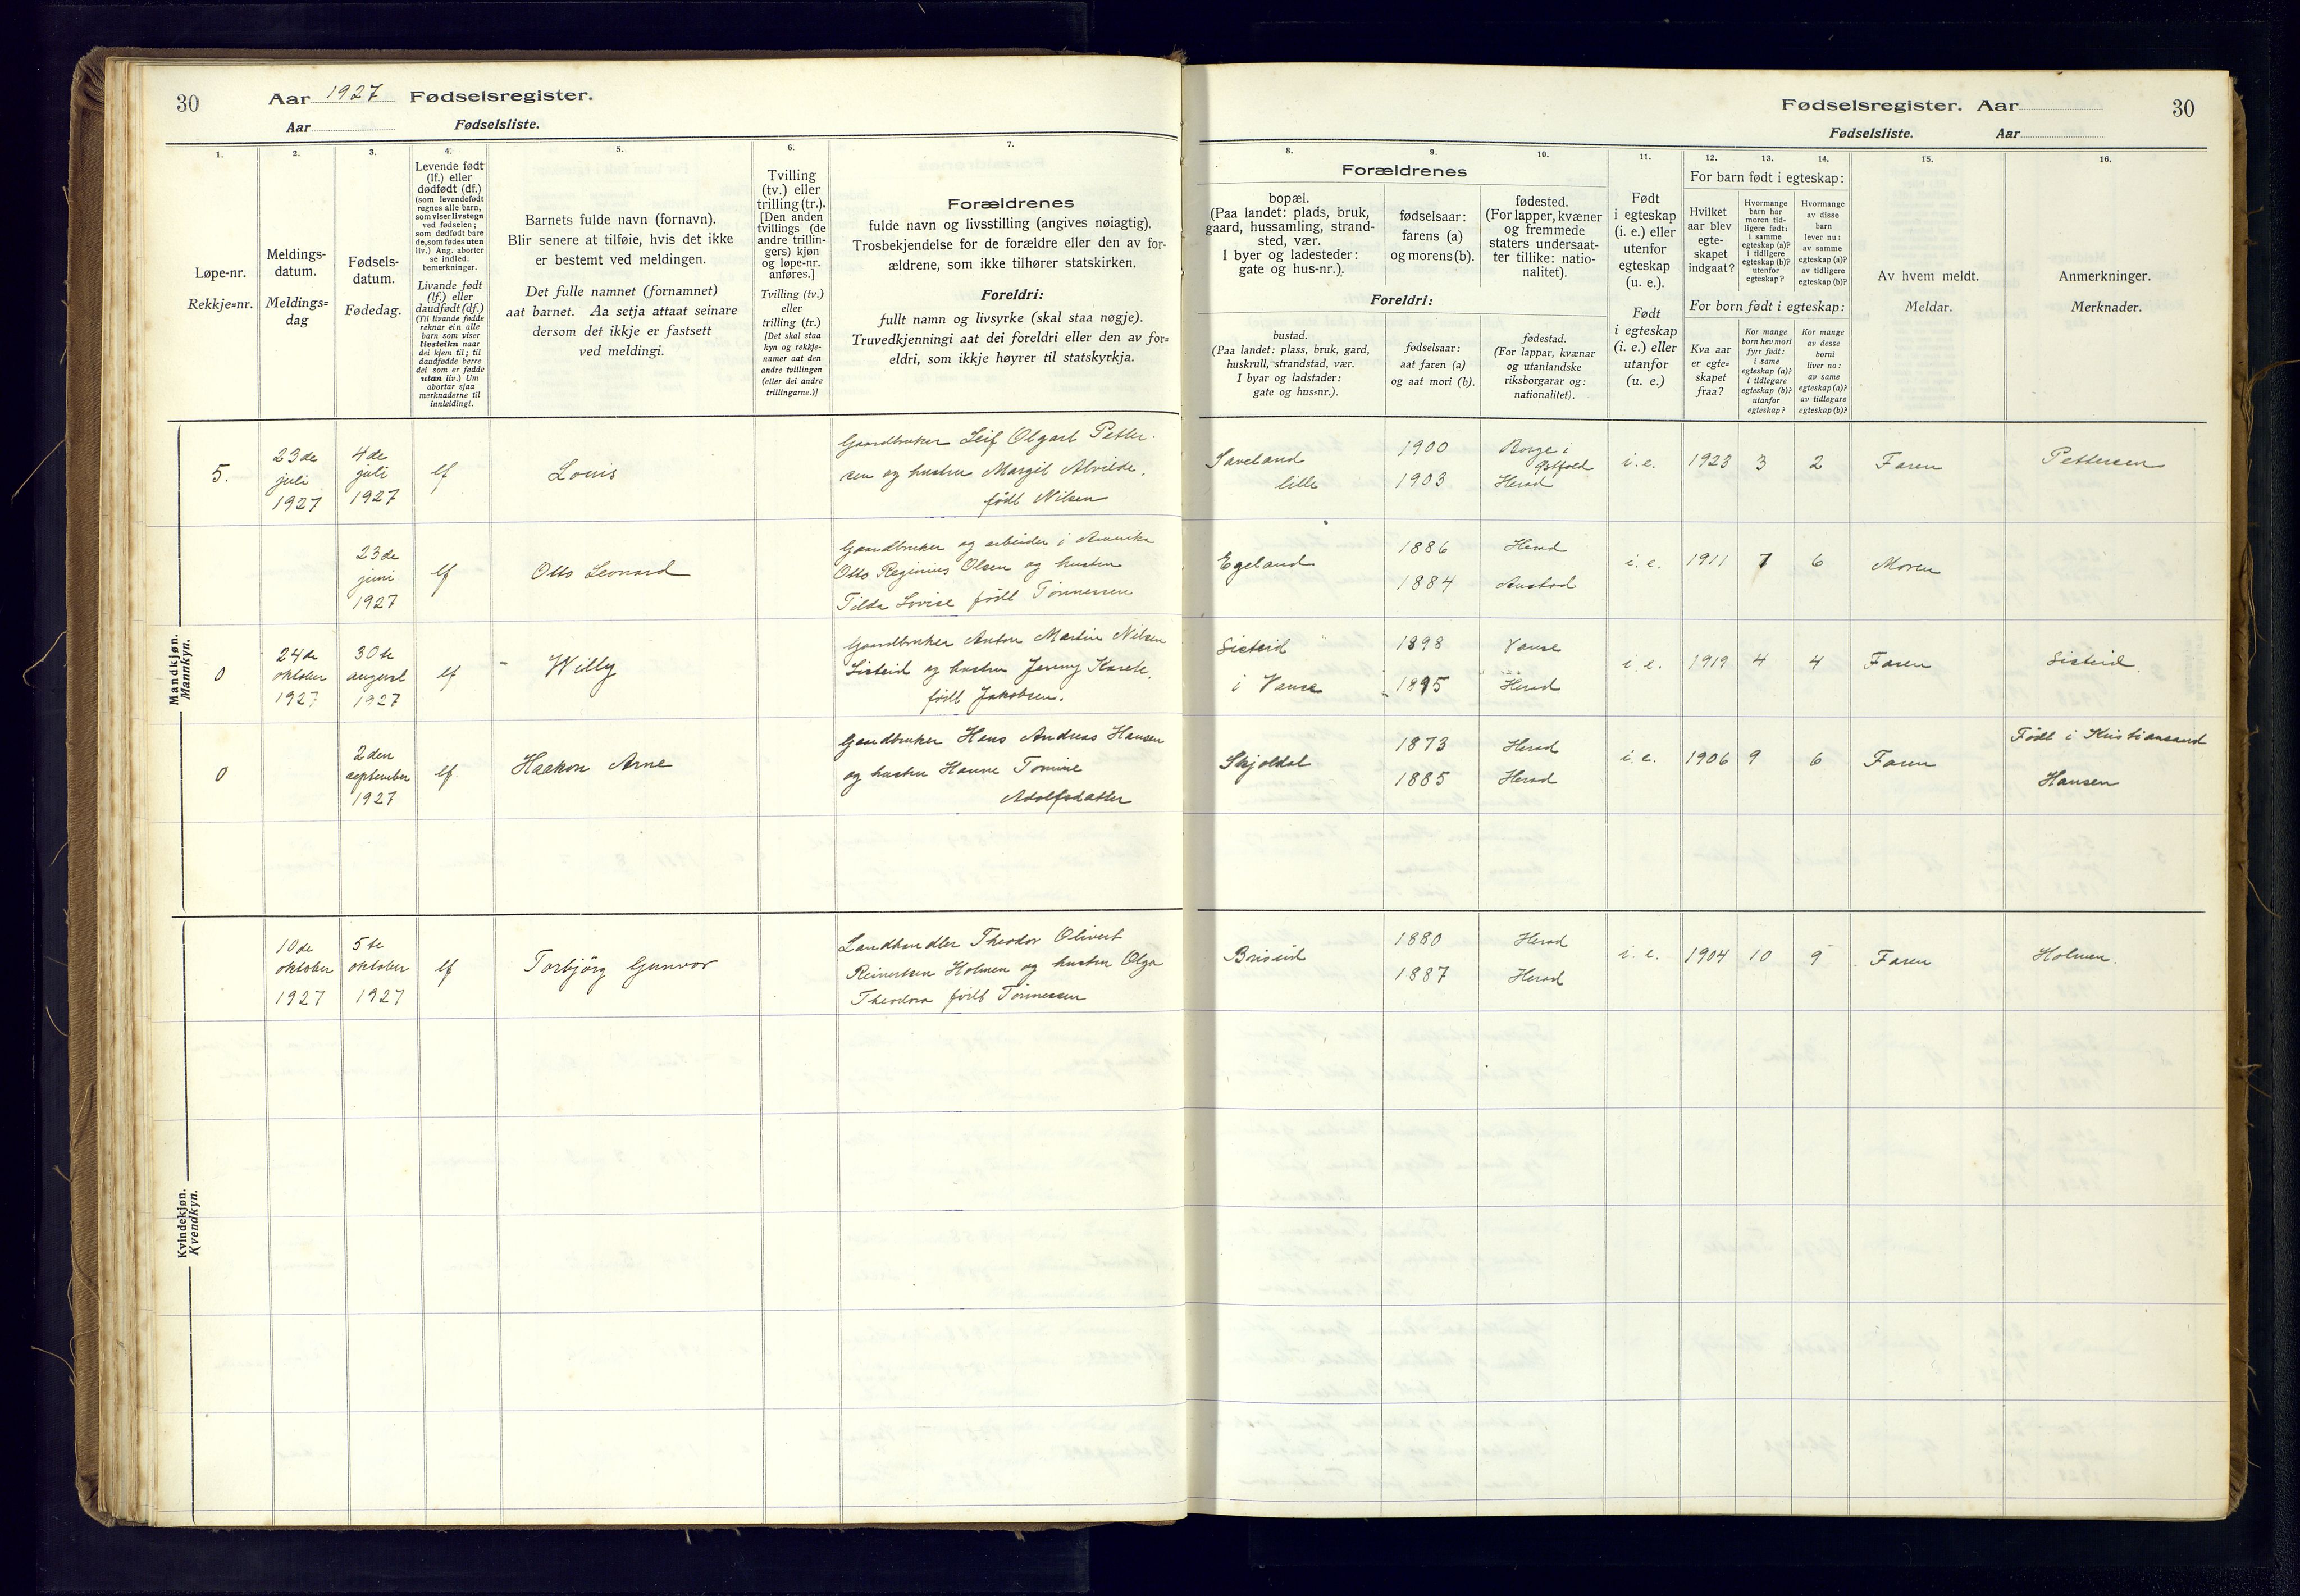 30
Aar 1927 Fødselsregister.
Aar Fødselsliste.
1.
2.
3.
4.
5.
6.
7.
Løpe-nr.
Rekkje=nr.
Meldings-
datum.
Meldings=
dag
Fødsels-
datum.
Fødedag.
Levende født
(lf.) eller
dødfødt (df.)
(som levendefødt
regnes alle barn,
som viser livstegn
ved fødselen;
som dødfødt bare
de, som fødes uten
liv.) Ang. aborter
se indled.
bemerkninger.
Livande født
(lf.) eller
daudfødt (df.)
(Til livande fødde
reknar ein alle
barn som viser
livsteikn naar
dei kjem til; til
daudfødde berre
dei som er fødde
utan liv.) Um
abortar sjaa
merknaderne til
innleidingi.
Barnets fulde navn (fornavn).
Blir senere at tilføie, hvis det ikke
er bestemt ved meldingen.
Det fulle namnet (fornamnet)
aat barnet. Aa setja attaat seinare
dersom det ikkje er fastsett
ved meldingi.
Tvilling
(tv.) eller
trilling (tr.).
[Den anden
tvillings (de
andre trillin-
gers) kjøn
og løpe-nr.
anføres.]
Tvilling (tv.)
eller
trilling (tr.)
[Det skal staa
kyn og rekkje-
numer aat den
andre tvillingen
(eller dei andre
trillingarne.)]
Forældrenes
fulde navn og livsstilling (angives nøiagtig).
Trosbekjendelse for de forældre eller den av for-
ældrene, som ikke tilhører statskirken.
Foreldri:
fullt namn og livsyrke (skal staa nøgje).
Truvedkjenningi aat dei foreldri eller den av for=
eldri, som ikkje høyrer til statskyrkja.
Mandkjøn.
Mannkyn.
5.
23de
juli
1927
4de
juli
1927
lf
Louis
Gaardbruker Leif Olgart Petter-
sen og hustru Margit Alvilde,
født Nilsen
23de
juni
1927
lf
Otto Leonard
Gaardbruker og arbeider i Amerika
Otto Reginius Olsen og hustru
Tilda Lovise født Tønnessen
0
24de
oktober
1927
30te
august
1927
lf
Willy
Gaardbruker Anton Martin Nilsen
Sisteid og hustru Jenny Karete,
født Jakobsen.
0
2den
september
1927
lf.
Haakon Arne
Gaardbruker Hans Andreas Hansen
og hustru Hanne Tomine
Adolfsdatter
Kvindekjøn.
Kvendkyn.
10de
oktober
1927
5te
oktober
1927
lf
Torbjörg Gunvor
Landhandler Theodor Olivert
Reinertsen Holmen og hustru Olga
Theodora født Tønnessen
Fødselsregister. Aar
30
Fødselsliste. Aar
8.
9.
10.
11.
12.
13.
14.
15.
16.
Forældrenes
bopæl.
(Paa landet: plads, bruk,
gaard, hussamling, strand-
sted, vær.
I byer og ladesteder:
gate og hus-nr.).
fødselsaar:
farens (a)
og morens (b).
fødested.
(For lapper, kvæner
og fremmede
staters undersaat-
ter tillike: natio-
nalitet).
Foreldri:
bustad.
(Paa landet: plass, bruk, gard,
huskrull, strandstad, vær.
I byar og ladstader:
gate og hus=nr.).
fødselsaar:
aat faren (a)
og aat mori (b).
fødestad.
(For lappar, kvænar
og utanlandske
riksborgarar og:
nationalitet).
Født
i egteskap
(i. e.) eller
utenfor
egteskap
(u. e.).
Født
i egteskap
(i. e.) eller
utanfor
(u. e.)
For barn født i egteskap:
Hvilket
aar blev
egte-
skapet
indgaat?
Hvormange
barn har
moren tid-
ligere født:
i samme
egteskap (a)?
i tidligere
egteskap (b)?
utenfor
egteskap?
Hvormange
av disse
barn
lever nu:
av samme
egteskap (a)?
av tidligere
egteskap (b)?
For born født i egteskap:
Kva aar
er egte=
skapet
fraa?
Kor mange
born hev mori
fyrr født:
i same
egteskap (a)?
i tidlegare
egteskap (b)?
utanfor
egteskap?
Kor mange
av desse
borni
liver no:
av same
egteskap (a)?
av tidlegare
egteskap (b)?
Av hvem meldt.
Meldar.
Anmerkninger.
Merknader.
Saveland
lille
1900
1903
Borge i
Østfold
Herad
i. e.
1923
3
2
Faren
Pettersen
Egeland
1886
1884
Herad
Austad
i. e.
1911
7
6
Moren
Sisteid
i Vanse
1898
1895
Vanse
Herad
i. e.
1919
4
4
Faren
Sisteid.
Skjoldal
1873
1885
Herad
Herad
i. e.
1906
9
6
Faren
Født i Kristiansand
Hansen
Briseid
1880
1887
Herad
Herad
i. e.
1904
10
9
Faren
Holmen.